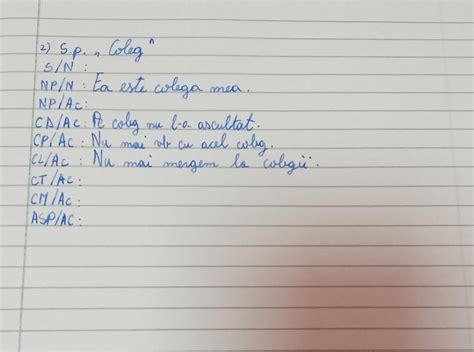 2) S.p. „Coleg"
S/N :
NP/N : Ea este colega mea.
NP/Ac:
CD/Ac: Pe coleg nu l-a ascultat.
CP/Ac: Nu mai vb cu acel coleg.
CL/Ac: Nu mai mergem la colegii.
CT/Ac:
CM/Ac:
ASP/AC: